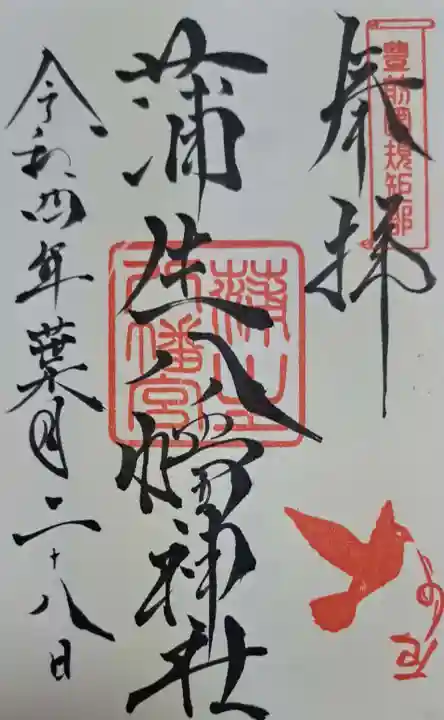 奉拝
豊前國規矩郡
蒲生八幡神社
蒲生八幡宮
令和四年葉月二十八日